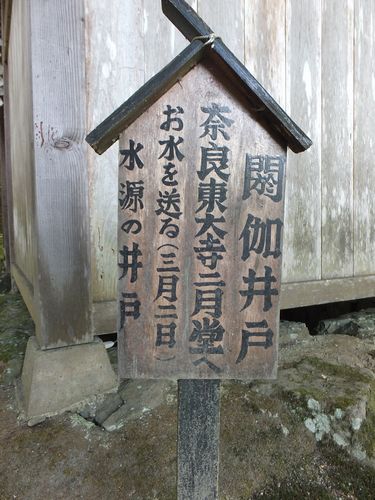 閼伽井戸
奈良東大寺二月堂へ
お水を送る(三月二日)
水源の井戸